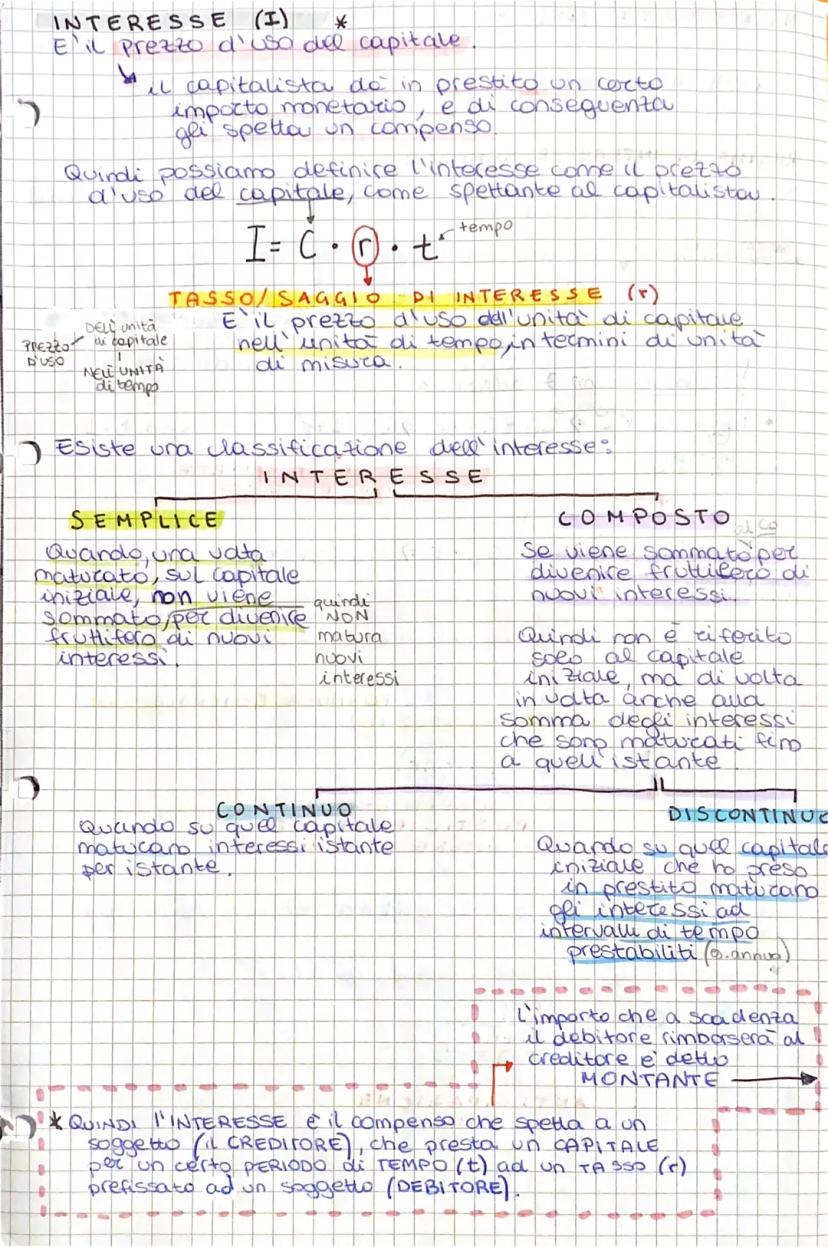 INTERESSE (I) *
E' il prezzo d'uso del capitale.
il capitalista dà in prestito un certo
importo monetario, e di conseguenza
gli spetta un compenso.
Quindi possiamo definire l'interesse come il prezzo
d'uso del capitale, come spettante al capitalista.
I = C · r · t tempo
TASSO/SAGGIO DI INTERESSE (r)
E' il prezzo d'uso dell'unità di capitale
nell'unità di tempo, in termini di unità
di misura.
PREZZO D'USO
DELL'unità
di capitale
NELL'UNITÀ
di tempo
Esiste una classificazione dell'interesse:
INTERESSE
SEMPLICE
Quando, una volta
maturato, sul capitale
iniziale, non viene
sommato, per divenire
fruttifero di nuovi
interessi.
quindi
NON
matura
nuovi
interessi
COMPOSTO
al C0
Se viene sommato per
divenire fruttifero di
nuovi interessi.
Quindi non è riferito
solo al capitale
iniziale, ma di volta
in volta anche alla
somma degli interessi
che sono maturati fino
a quell'istante
CONTINUO
Quando su quel capitale
maturano interessi istante
per istante.
DISCONTINUO
Quando su quel capitale
iniziale che ho preso
in prestito maturano
gli interessi ad
intervalli di tempo
prestabiliti (annua)
L'importo che a scadenza
il debitore rimborserà al
creditore è detto
MONTANTE
* QUINDI l'INTERESSE è il compenso che spetta a un
soggetto (il CREDITORE), che presta un CAPITALE
per un certo PERIODO di TEMPO (t) ad un TASSO (r)
prefissato ad un soggetto (DEBITORE).